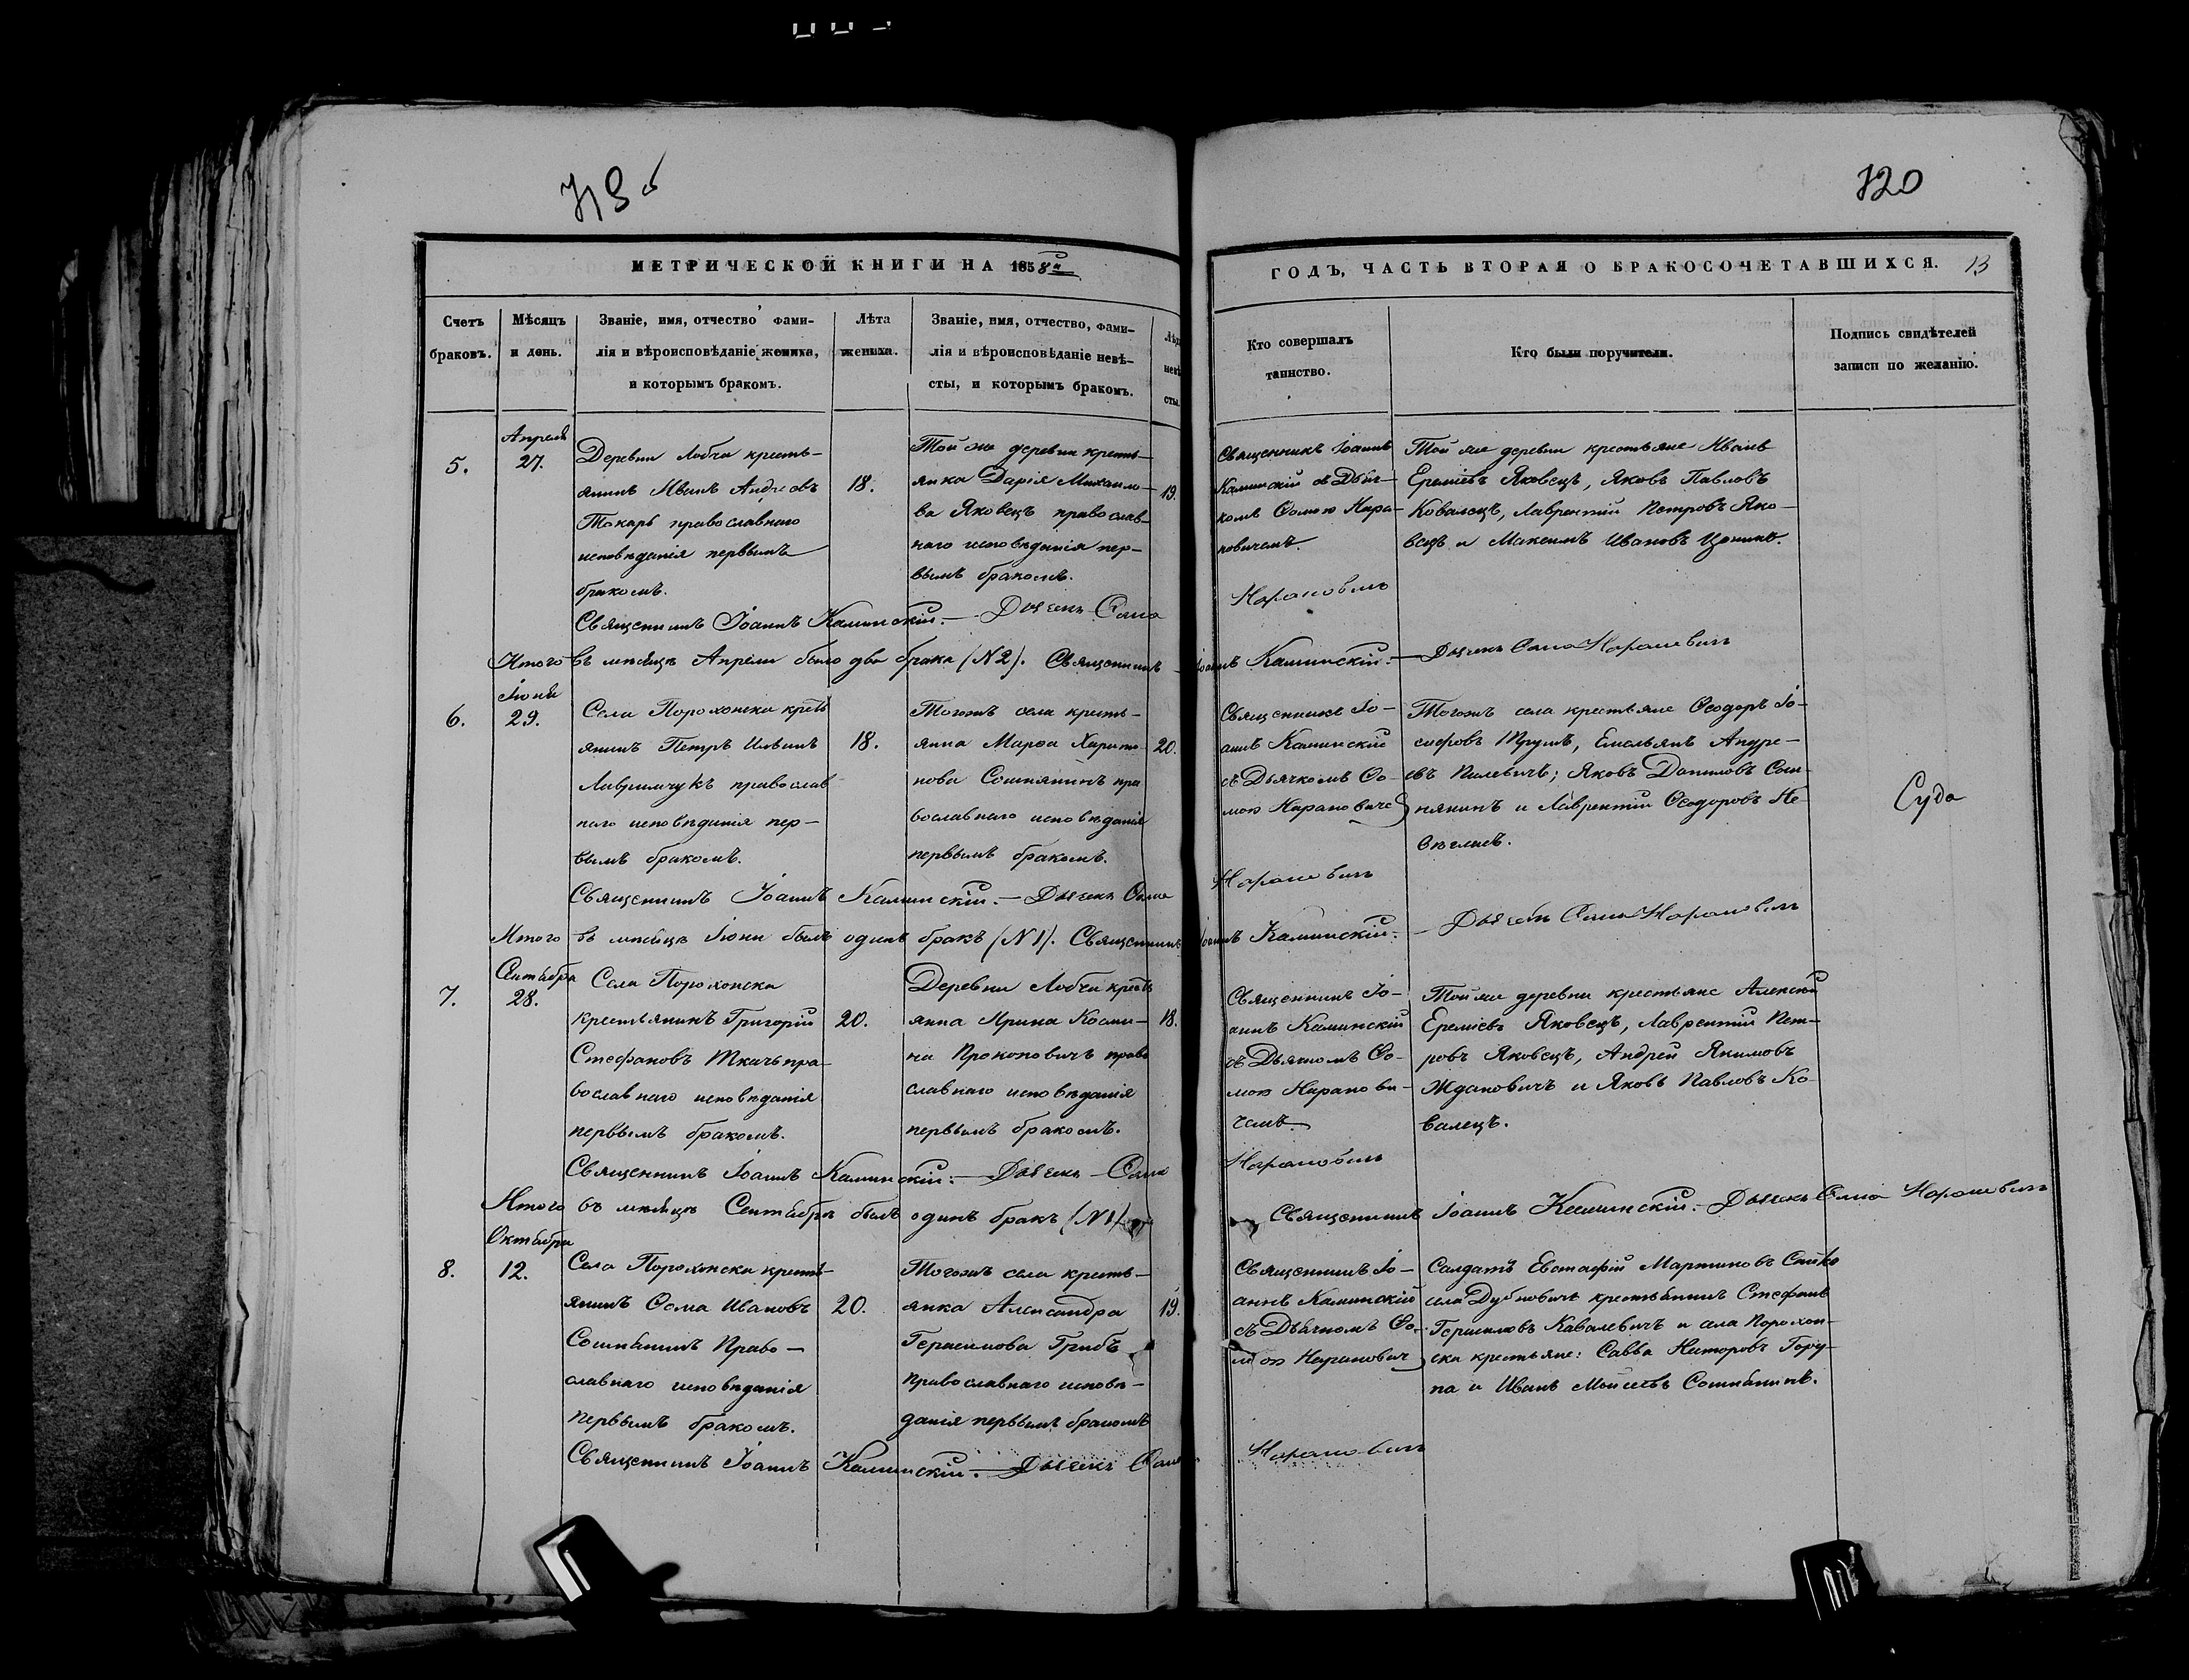 120
МЕТРИЧЕСКОЙ КНИГИ НА 1858й
ГОДЪ, ЧАСТЬ ВТОРАЯ О БРАКОСОЧЕТАВШИХСЯ. 13
Счетъ
браковъ.
Мѣсяцъ
и день.
Званіе, имя, отчество фами-
лія и вѣроисповѣданіе жениха,
и которымъ бракомъ.
Лѣта
жениха.
Званіе, имя, отчество, фами-
лія и вѣроисповѣданіе невѣ-
сты, и которымъ бракомъ.
Кто совершалъ
таинство.
Кто были поручители.
Подпись свидѣтелей
записи по желанію.
5.
Апреля
27.
Деревни Лобчи кресть-
янинъ Иванъ Андреевъ
Токарь православнаго
исповѣданія первымъ
бракомъ.
18.
Той же деревни кресть-
янка Дарія Михаило-
ва Яковецъ православ-
наго исповѣданія пер-
вымъ бракомъ.
19.
Священникъ Іоаннъ
Каминскій съ Дьяч-
комъ Ѳомою Нара-
новичемъ.
Той же деревни крестьяне Иванъ
Ереміевъ Яковецъ, Яковъ Павловъ
Ковалецъ, Лаврентій Петровъ Яко-
вецъ и Максимъ Ивановъ
Священникъ Іоаннъ Каминскій. — Дьячекъ Ѳома Нарановичъ
Итого въ мѣсяцѣ Апрели было два брака (N 2). Священникъ Іоаннъ Каминскій. — Дьячекъ Ѳома Нарановичъ
6.
Іюня
29.
Села Порохонска кресть
янинъ Петръ
православ
наго исповѣданія пер-
вымъ бракомъ.
18.
Тогожъ села кресть-
янка Марѳа Харито-
нова Сошнянинъ пра
вославнаго исповѣданія
первымъ бракомъ.
20.
Священникъ Іо-
аннъ Каминскій
съ Дьячкомъ Ѳо-
мою Нарановиче
Тогожъ села крестьяне Ѳеодоръ Іо-
сифовъ Трушъ, Емельянъ Андре-
евъ Пилевичъ; Яковъ Даниловъ Сош-
нянинъ и Лаврентій Ѳеодоровъ Не-
Суда
Священникъ Іоаннъ Каминскій. — Дьячекъ Ѳома Нарановичъ
Итого въ мѣсяцѣ Іюни былъ одинъ бракъ (N 1). Священникъ Іоаннъ Каминскій. — Дьячекъ Ѳома Нарановичъ
7.
Сентября
28.
Села Порохонска
крестьянинъ Григорій
Стефановъ Ткачъ пра-
вославнаго исповѣданія
первымъ бракомъ.
20.
Деревни Лобчи кресть
янка Ирина Косми-
на Прокоповичъ право
славнаго исповѣданія
первымъ бракомъ.
18.
Священникъ Іо-
аннъ Каминскій
съ Дьячкомъ Ѳо-
мою Наранови-
чемъ.
Той же деревни крестьяне Алексѣй
Ереміевъ Яковецъ, Лаврентій Пет-
ровъ Яковецъ, Андрей Якимовъ
Ждановичъ и Яковъ Павловъ Ко-
валецъ.
Священникъ Іоаннъ Каминскій. — Дьячекъ Ѳома Нарановичъ
Итого въ мѣсяцѣ Сентябрѣ былъ одинъ бракъ (N 1) Священникъ Іоаннъ Каминскій. — Дьячекъ Ѳома Нарановичъ
8.
Октября
12.
Села Порохонска кресть-
янинъ Ѳома Ивановъ
Сошнянинъ Право-
славнаго исповѣданія
первымъ бракомъ.
20.
Тогожъ села кресть-
янка Александра
Герасимова Грибъ
православнаго исповѣ-
данія первымъ бракомъ
19.
Священникъ Іо-
аннъ Каминскій
съ Дьячкомъ Ѳо-
мою Нарановиче
Солдатъ Евстафій Мартиновъ
села Дубновичъ крестьянинъ Стефанъ
Ковалевичъ и села Порохон-
ска крестьяне: Савва
па и Иванъ Мойсеевъ Сошнянинъ.
Священникъ Іоаннъ Каминскій. — Дьячекъ Ѳома Нарановичъ